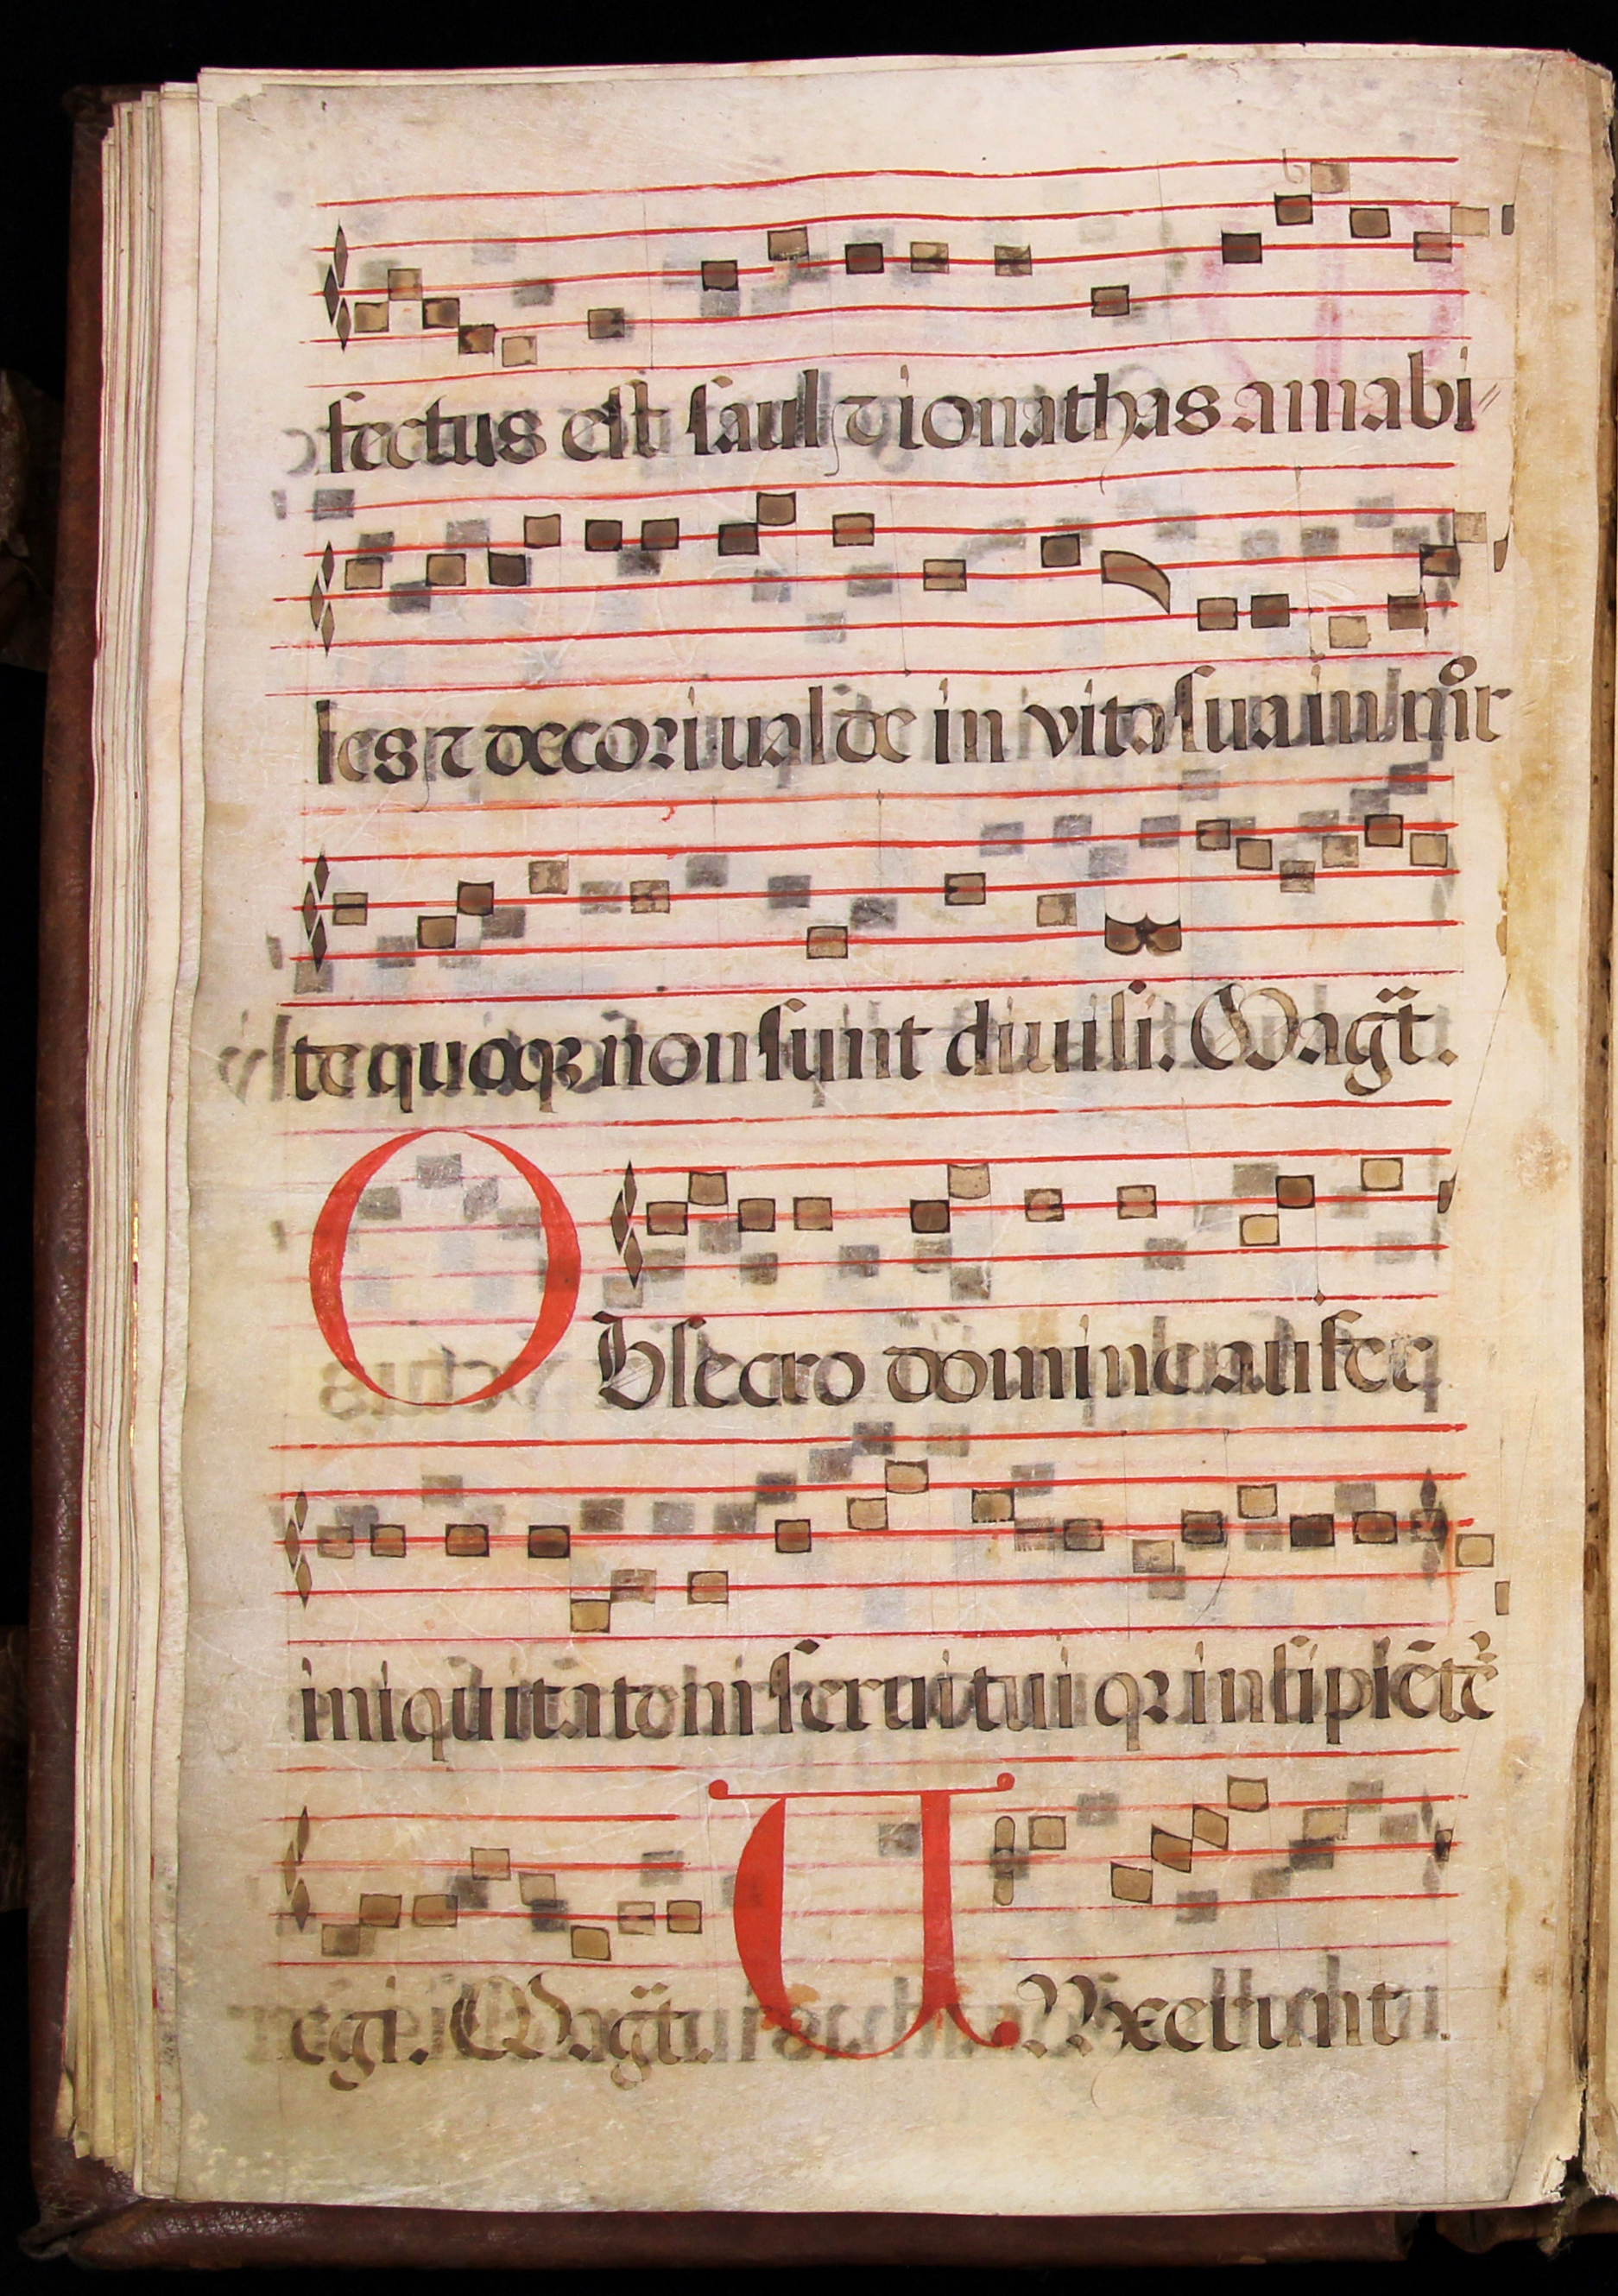 fectus est saul ⁊ ionathas amabi
les ⁊ decori ualde in vita sua in mor
te quoqꝫ non sunt diuisi. Magt̄.
OBsecro domine aufer
iniquitatem serui tui qꝛ insipiēte
egi. Magt̄. UNxerunt